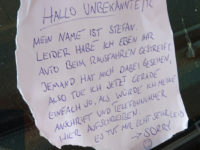 HALLO UNBEKANNTE/R
MEIN NAME IST STEFAN.
LEIDER HABE ICH EBEN IHR
AUTO BEIM RAUSFAHREN GESTREIFT.
JEMAND HAT MICH DABEI GESEHEN,
ALSO TUE ICH JETZT GERADE
EINFACH SO, ALS WÜRDE ICH MEINE
ANSCHRIFT UND TELEFONNUMMER
HIER AUFSCHREIBEN.
ES TUT MIR ECHT SEHR LEID
→ SORRY